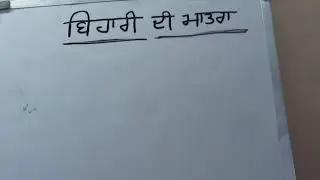 ਬਿਹਾਰੀ ਦੀ ਮਾਤਰਾ